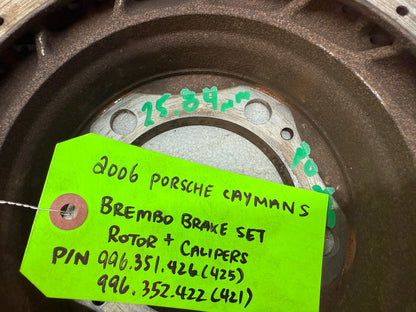 25.84mm
2006 PORSCHE CAYMAN S
BREMBO BRAKE SET
ROTOR + CALIPERS
P/N 996.351.426(425)
996.352.422(421)